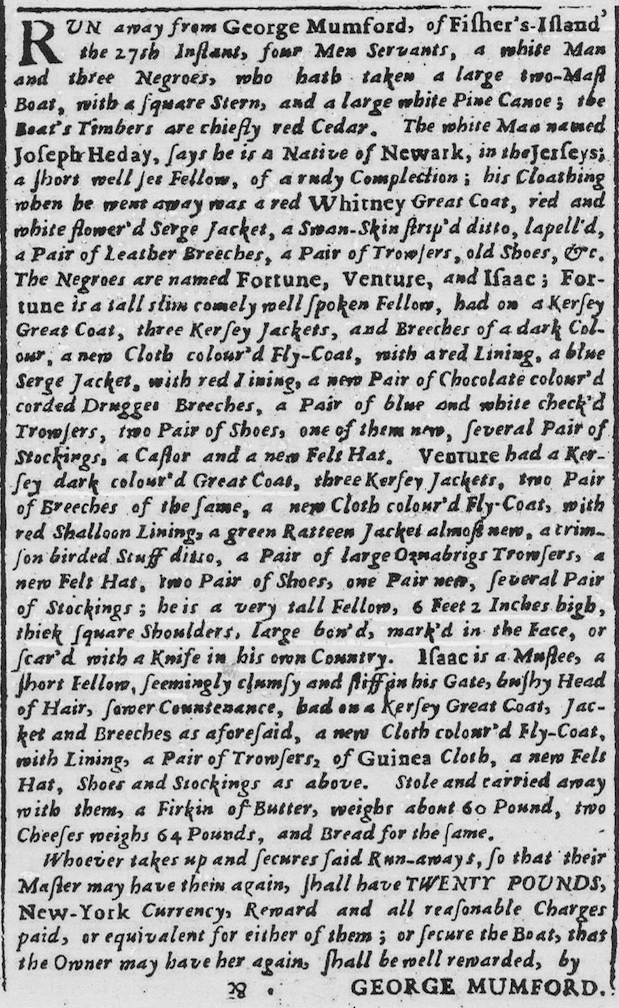 RUN away from George Mumford, of Fiſher's-Iſland'
the 27th Inſtant, four Men Servants, a white Man
and three Negroes, who hath taken a large two-Maſt
Boat, with a ſquare Stern, and a large white Pine Canoe; the
Boat's Timbers are chiefly red Cedar. The white Man named
Joſeph Heday, ſays he is a Native of Newark, in the Jerſeys;
a ſhort well ſet Fellow, of a rudy Complection; his Cloathing
when he went away was a red Whitney Great Coat, red and
white flower'd Serge Jacket, a Swan-Skin ſtrip'd ditto, lapell'd,
a Pair of Leather Breeches, a Pair of Trowſers, old Shoes, &c.
The Negroes are named Fortune, Venture, and Iſaac; For-
tune is a tall ſlim comely well ſpoken Fellow, had on a Kerſey
Great Coat, three Kerſey Jackets, and Breeches of a dark Col-
our, a new Cloth colour'd Fly-Coat, with a red Lining, a blue
Serge Jacket, with red Lining, a new Pair of Chocolate colour'd
corded Drugget Breeches, a Pair of blue and white check'd
Trowſers, two Pair of Shoes, one of them new, ſeveral Pair of
Stockings, a Caſtor and a new Felt Hat. Venture had a Ker-
ſey dark colour'd Great Coat, three Kerſey Jackets, two Pair
of Breeches of the ſame, a new Cloth colour'd Fly-Coat, with
red Shalloon Lining, a green Ratteen Jacket almoſt new, a crim-
ſon birded Stuff ditto, a Pair of large Oznabrigs Trowſers, a
new Felt Hat, two Pair of Shoes, one Pair new, ſeveral Pair
of Stockings; he is a very tall Fellow, 6 Feet 2 Inches high,
thick ſquare Shoulders, large bon'd, mark'd in the Face, or
ſcar'd with a Knife in his own Country. Iſaac is a Muſtee, a
ſhort Fellow, ſeemingly clumſy and ſtiff in his Gate, buſhy Head
of Hair, ſower Countenance, had on a Kerſey Great Coat, Jac-
ket and Breeches as aforeſaid, a new Cloth colour'd Fly-Coat,
with Lining, a Pair of Trowſers, of Guinea Cloth, a new Felt
Hat, Shoes and Stockings as above. Stole and carried away
with them, a Firkin of Butter, weighs about 60 Pound, two
Cheeſes weighs 64 Pounds, and Bread for the ſame.
Whoever takes up and ſecures ſaid Run-aways, ſo that their
Maſter may have them again, ſhall have TWENTY POUNDS,
New-York Currency, Reward and all reaſonable Charges
paid, or equivalent for either of them; or ſecure the Boat, that
the Owner may have her again, ſhall be well rewarded, by
GEORGE MUMFORD.